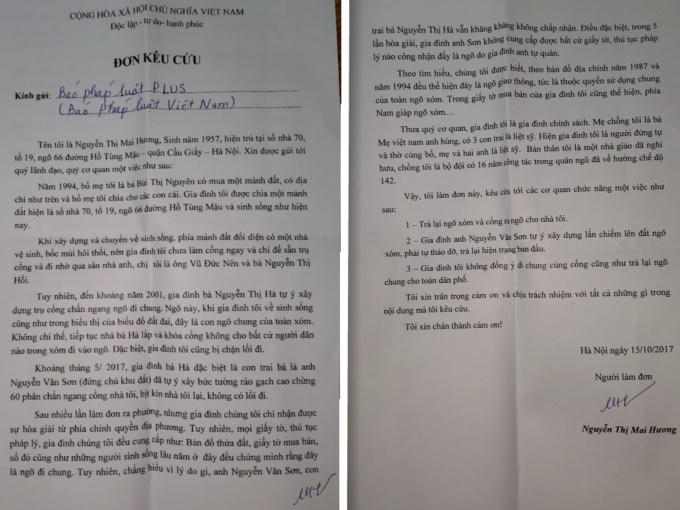 CỘNG HÒA XÃ HỘI CHỦ NGHĨA VIỆT NAM
Độc lập - tự do- hạnh phúc
ĐƠN KÊU CỨU
Kính gửi: Báo pháp luật PLUS
(Báo Pháp luật Việt Nam)
Tên tôi là Nguyễn Thị Mai Hương, Sinh năm 1957, hiện trú tại số nhà 70,
tờ 19, ngõ 66 đường Hồ Tùng Mậu – quận Cầu Giấy – Hà Nội. Xin được gửi tới
quý lãnh đạo, quý cơ quan một việc như sau:
Năm 1994, bố mẹ tôi là bà Bùi Thị Nguyên có mua một mảnh đất, có địa
chỉ như trên và bố mẹ tôi chia cho các con cái. Gia đình tôi được chia một mảnh
đất hiện là số nhà 70, tổ 19, ngõ 66 đường Hồ Tùng Mậu và sinh sống như hiện
nay.
Khi xây dựng và chuyển về sinh sống, phía mảnh đất đối diện có một nhà
vệ sinh, bốc mùi hôi thối, nên gia đình tôi chưa làm cổng ngay và chỉ để sẵn trụ
cổng và đi nhờ qua sân nhà anh, chị tôi là ông Vũ Đức Nên và bà Nguyễn Thị
Hồi.
Tuy nhiên, đến khoảng năm 2001, gia đình bà Nguyễn Thị Hà tự ý xây
dựng trụ cổng chắn ngang ngõ đi chung. Ngõ này, khi gia đình tôi về sinh sống
cũng như trong biểu thị của biểu đồ đất đai, đây là con ngõ chung của toàn xóm.
Không chỉ thế, tiếp tục nhà bà Hà lắp và khóa cổng không cho bất cứ người dân
nào trong xóm đi vào ngõ. Đặc biệt, gia đình tôi cũng bị chặn lối đi.
Khoảng tháng 5/ 2017, gia đình bà Hà đặc biệt là con trai bà là anh
Nguyễn Văn Sơn (đứng chủ khu đất) đã tự ý xây bức tường rào gạch cao chừng
60 phân chắn ngang cổng nhà tôi, bịt kín nhà tôi lại, không có lối đi.
Sau nhiều lần làm đơn ra phường, nhưng gia đình chúng tôi chỉ nhận được
sự hòa giải từ phía chính quyền địa phương. Tuy nhiên, mọi giấy tờ, thủ tục
pháp lý, gia đình chúng tôi đều cung cấp như: Bản đồ thửa đất, giấy tờ mua bán,
sổ đỏ cũng như những người sinh sống lâu năm ở đây đều chứng minh rằng đây
là ngõ đi chung. Tuy nhiên, chẳng hiểu vì lý do gì, anh Nguyễn Văn Sơn, con
trai bà Nguyễn Thị Hà vẫn khăng khăng không chấp nhận. Điều đặc biệt, trong 5
lần hòa giải, gia đình anh Sơn không cung cấp được bất cứ giấy tờ, thủ tục pháp
lý nào công nhận đấy là ngõ do gia đình anh tự quản.
Theo tìm hiểu, chúng tôi được biết, theo bản đồ địa chính năm 1987 và
năm 1994 đều thể hiện đây là ngõ giao thông, tức là thuộc quyền sử dụng chung
của toàn ngõ xóm. Trong giấy tờ mua bán của gia đình tôi cũng thể hiện, phía
Nam giáp ngõ xóm…
Thưa quý cơ quan, gia đình tôi là gia đình chính sách. Mẹ chồng tôi là bà
Mẹ việt nam anh hùng, có 3 con trai là liệt sỹ. Hiện gia đình tôi là người đứng tự
và thờ cúng bố, mẹ và hai anh là liệt sỹ. Bản thân tôi là một nhà giáo đã nghỉ
hưu, chồng tôi là bộ đội có 16 năm công tác trong quân ngũ đã về hưởng chế độ
142.
Vậy, tôi làm đơn này, kêu cứu tới các cơ quan chức năng một việc như
sau:
1 – Trả lại ngõ xóm và cổng ra ngõ cho nhà tôi.
2 – Gia đình anh Nguyễn Văn Sơn tự ý xây dựng lấn chiếm lên đất ngõ
xóm, phải tự tháo dỡ, trả lại hiện trạng ban đầu.
3 – Gia đình tôi không đồng ý đi chung cùng cổng cũng như trả lại ngõ
chung cho toàn dân phố.
Tôi xin trân trọng cảm ơn và chịu trách nhiệm với tất cả những gì trong
nội dung mà tôi kêu cứu.
Tôi xin chân thành cảm ơn!
Hà Nội ngày 15/10/2017
Người làm đơn
Nguyễn Thị Mai Hương